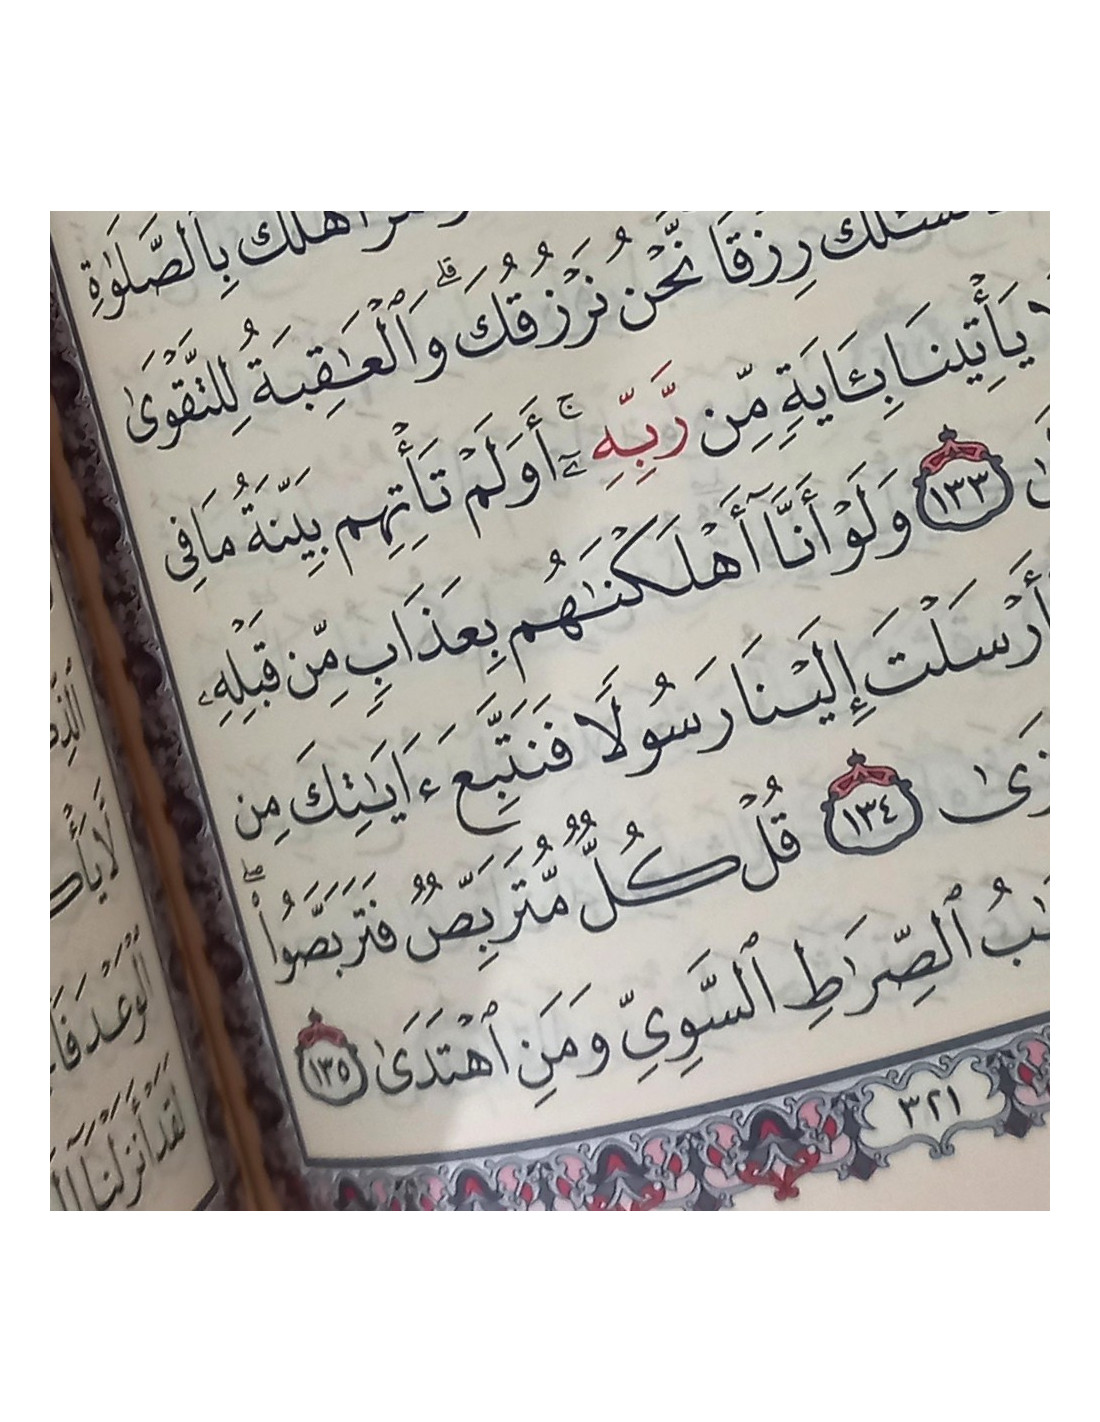 أَهْلَكَ بِٱلصَّلَوٰةِ
رِزْقًا نَّحْنُ نَرْزُقُكَ ۗ وَٱلْعَـٰقِبَةُ لِلتَّقْوَىٰ
يَأْتِينَا بِـَٔايَةٍ مِّن رَّبِّهِۦٓ ۚ أَوَلَمْ تَأْتِهِم بَيِّنَةُ مَا فِى
١٣٣ وَلَوْ أَنَّآ أَهْلَكْنَـٰهُم بِعَذَابٍ مِّن قَبْلِهِۦ
أَرْسَلْتَ إِلَيْنَا رَسُولًا فَنَتَّبِعَ ءَايَـٰتِكَ مِن
١٣٤ قُلْ كُلٌّ مُّتَرَبِّصٌ فَتَرَبَّصُوا۟ ۖ
ٱلصِّرَٰطِ ٱلسَّوِىِّ وَمَنِ ٱهْتَدَىٰ ١٣٥
٣٢١
لَقَدْ أَنزَلْنَآ